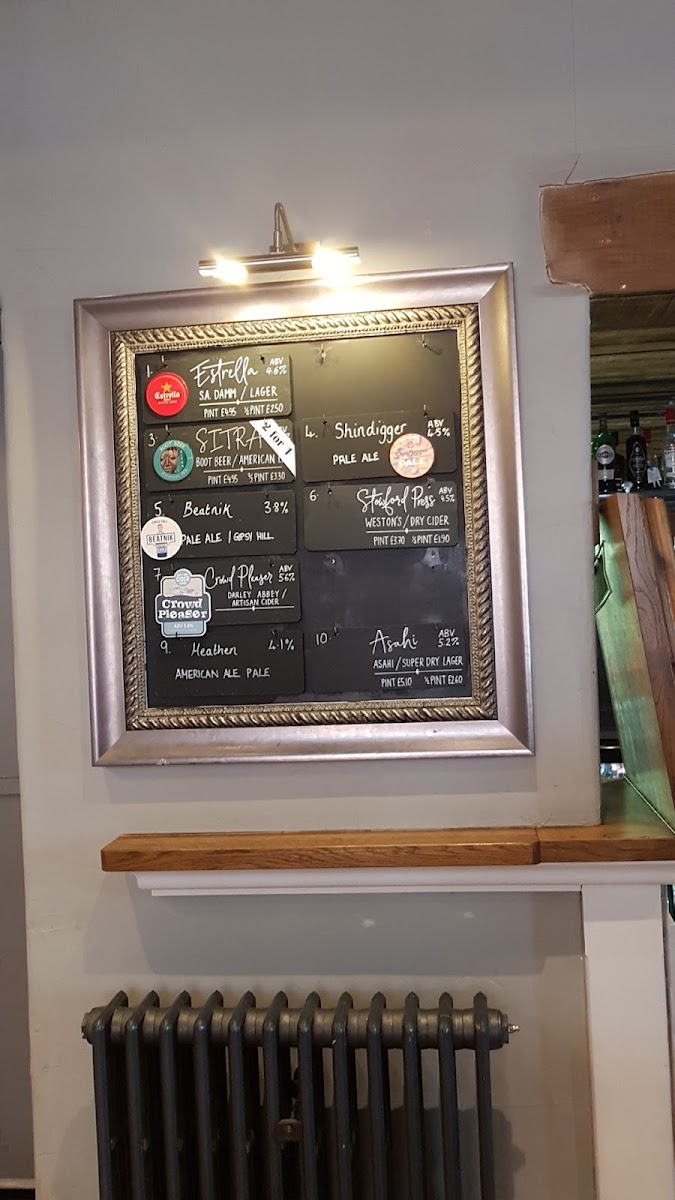 1. Estrella ABV 4.6%
S.A. DAMM / LAGER
PINT £4.95 ½ PINT £2.50
Estrella
3. SITRA
2 for 1
BOOT BEER / AMERICAN
PINT £4.95 ½ PINT £3.30
4. Shindigger ABV 4.5%
PALE ALE
5. Beatnik 3.8%
PALE ALE / GIPSY HILL
BEATNIK
6. Stowford Press ABV 4.5%
WESTON'S / DRY CIDER
PINT £3.70 ½ PINT £1.90
7. Crowd Pleaser ABV 5.6%
DARLEY ABBEY /
ARTISAN CIDER
CIDER
Crowd
Pleaser
9. Heathen 4.1%
AMERICAN ALE PALE
10. Asahi ABV 5.2%
ASAHI / SUPER DRY LAGER
PINT £5.10 ½ PINT £2.60